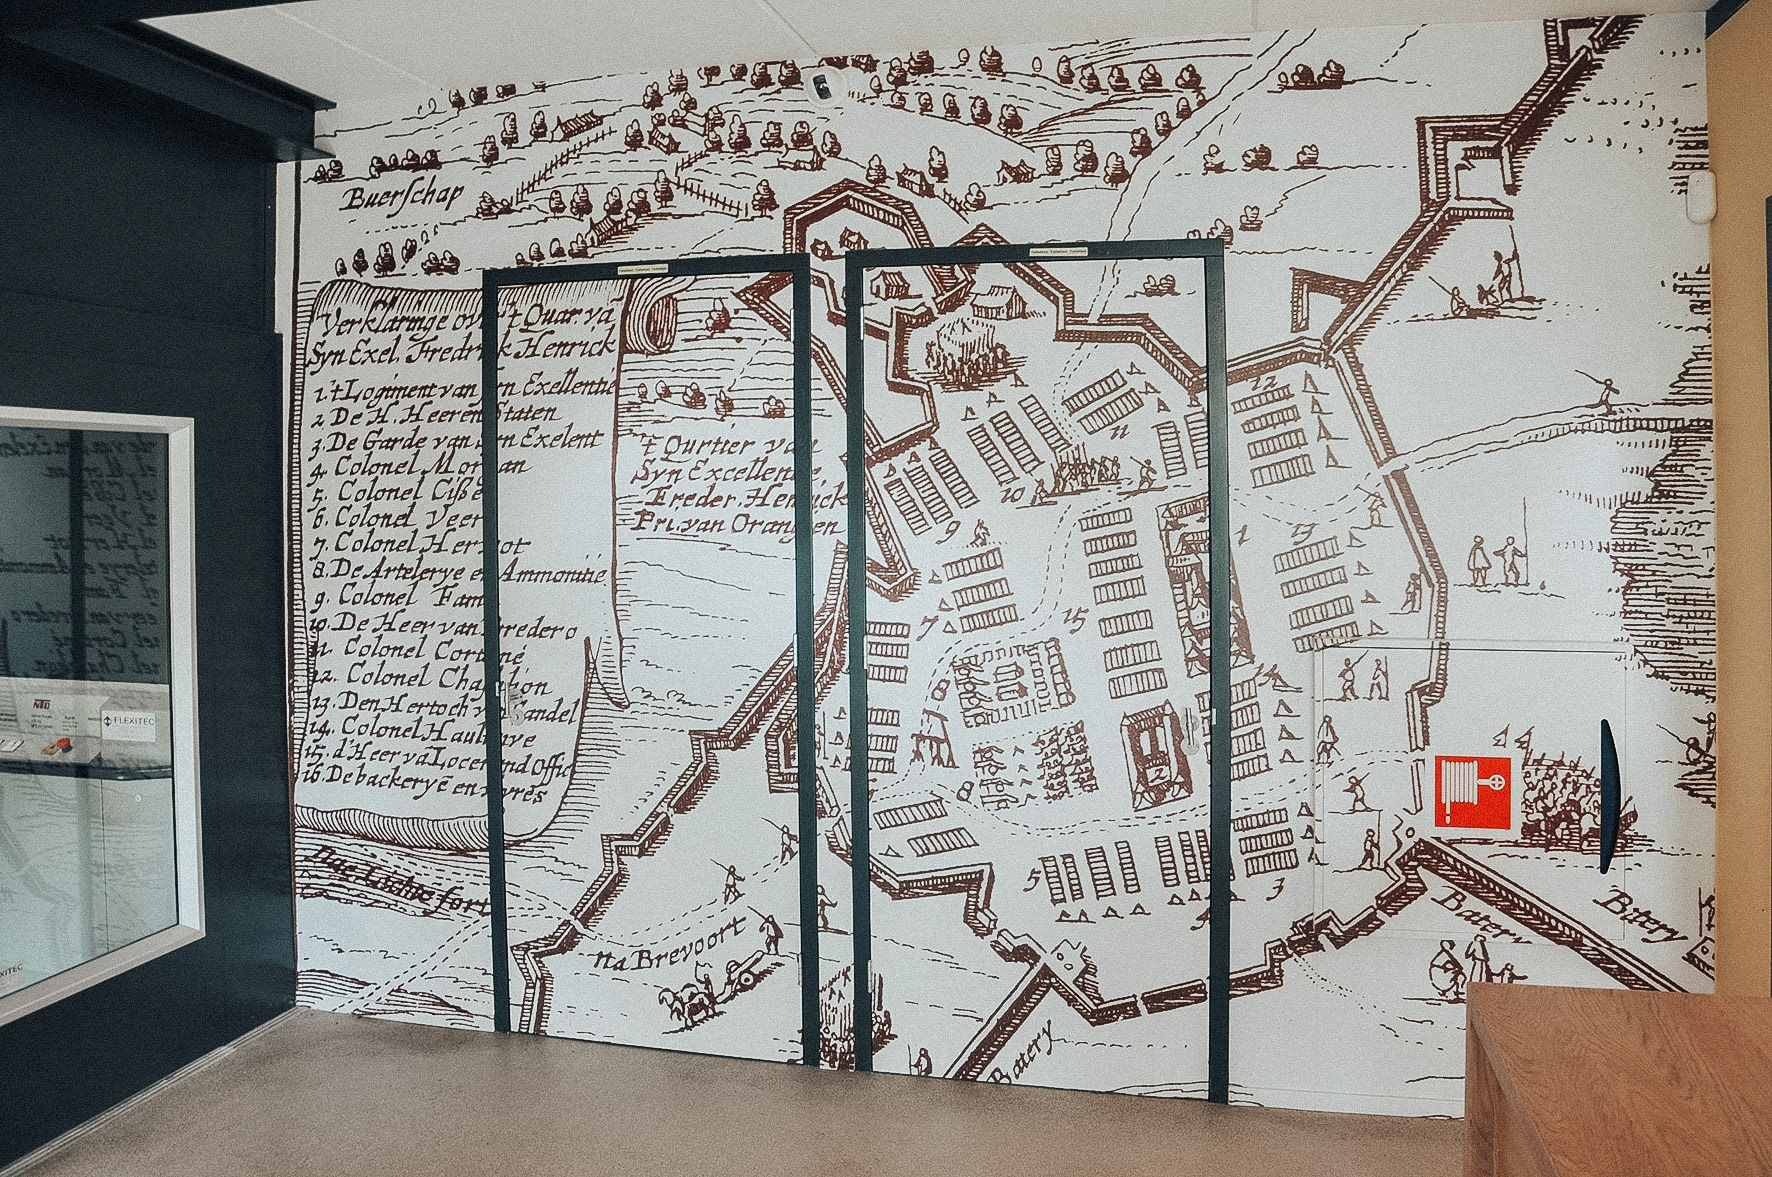 Buerſchap
Verklaringe ov t Quar vā
Syn Exel. Fredrik Henrick
1. 't Logiment van Syn Exellentie
2 De H. Heeren Staten
3. De Garde van Syn Exelent
4. Colonel Morgan
5. Colonel Ciße
6. Colonel Veer
7. Colonel Her ot
8. De Artelerye en Ammonitie
9. Colonel Fam
10. De Heer van Bredero
11. Colonel
12. Colonel Cha on
13. Den Hertoch v Candel
14. Colonel Haul ve
15. d'Heer vā Loce nd Offic
16. De backeryē en
't Qurtier van
Syn Excellentie
Freder. Henrick
Pri. van Orangien
fort
na Brevoort
Batery
Batery
Bitery
12
11
10
9
1
13
7
15
8
14
2
5
3
FLEXITEC